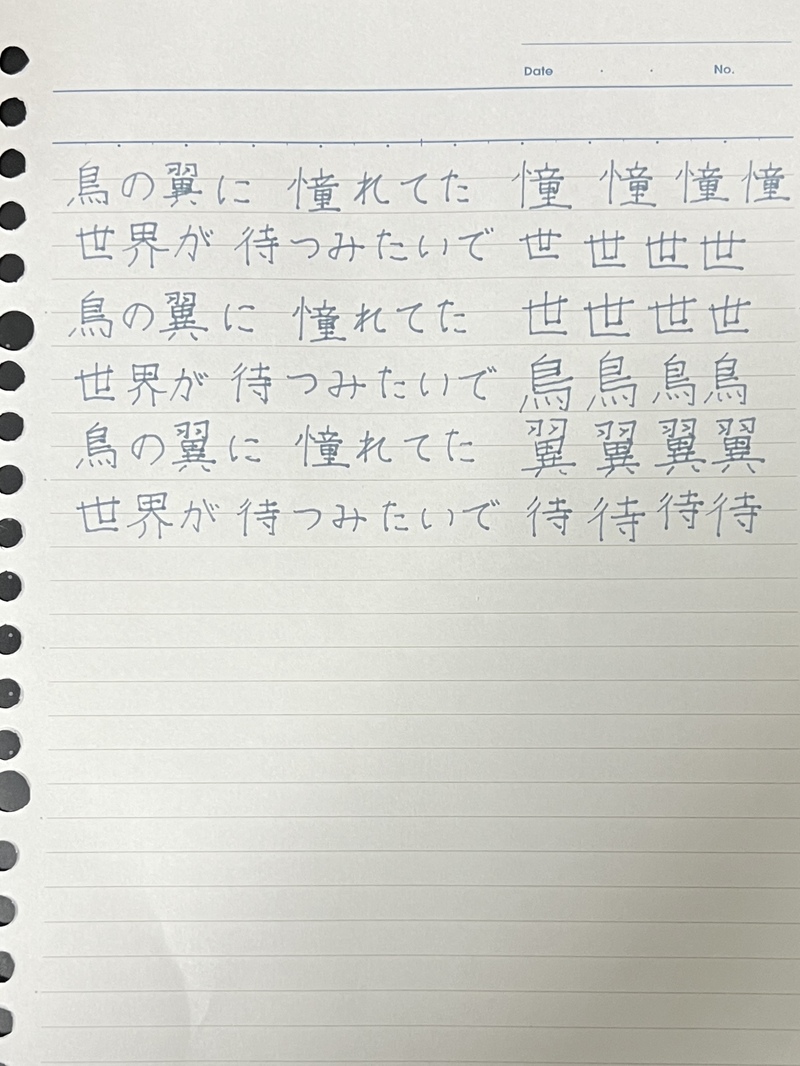 Date . . No.
鳥の翼に 憧れてた 憧 憧 憧 憧
世界が 待つみたいで 世 世 世 世
鳥の翼に 憧れてた 世 世 世 世
世界が 待つみたいで 鳥 鳥 鳥 鳥
鳥の翼に 憧れてた 翼 翼 翼 翼
世界が 待つみたいで 待 待 待 待